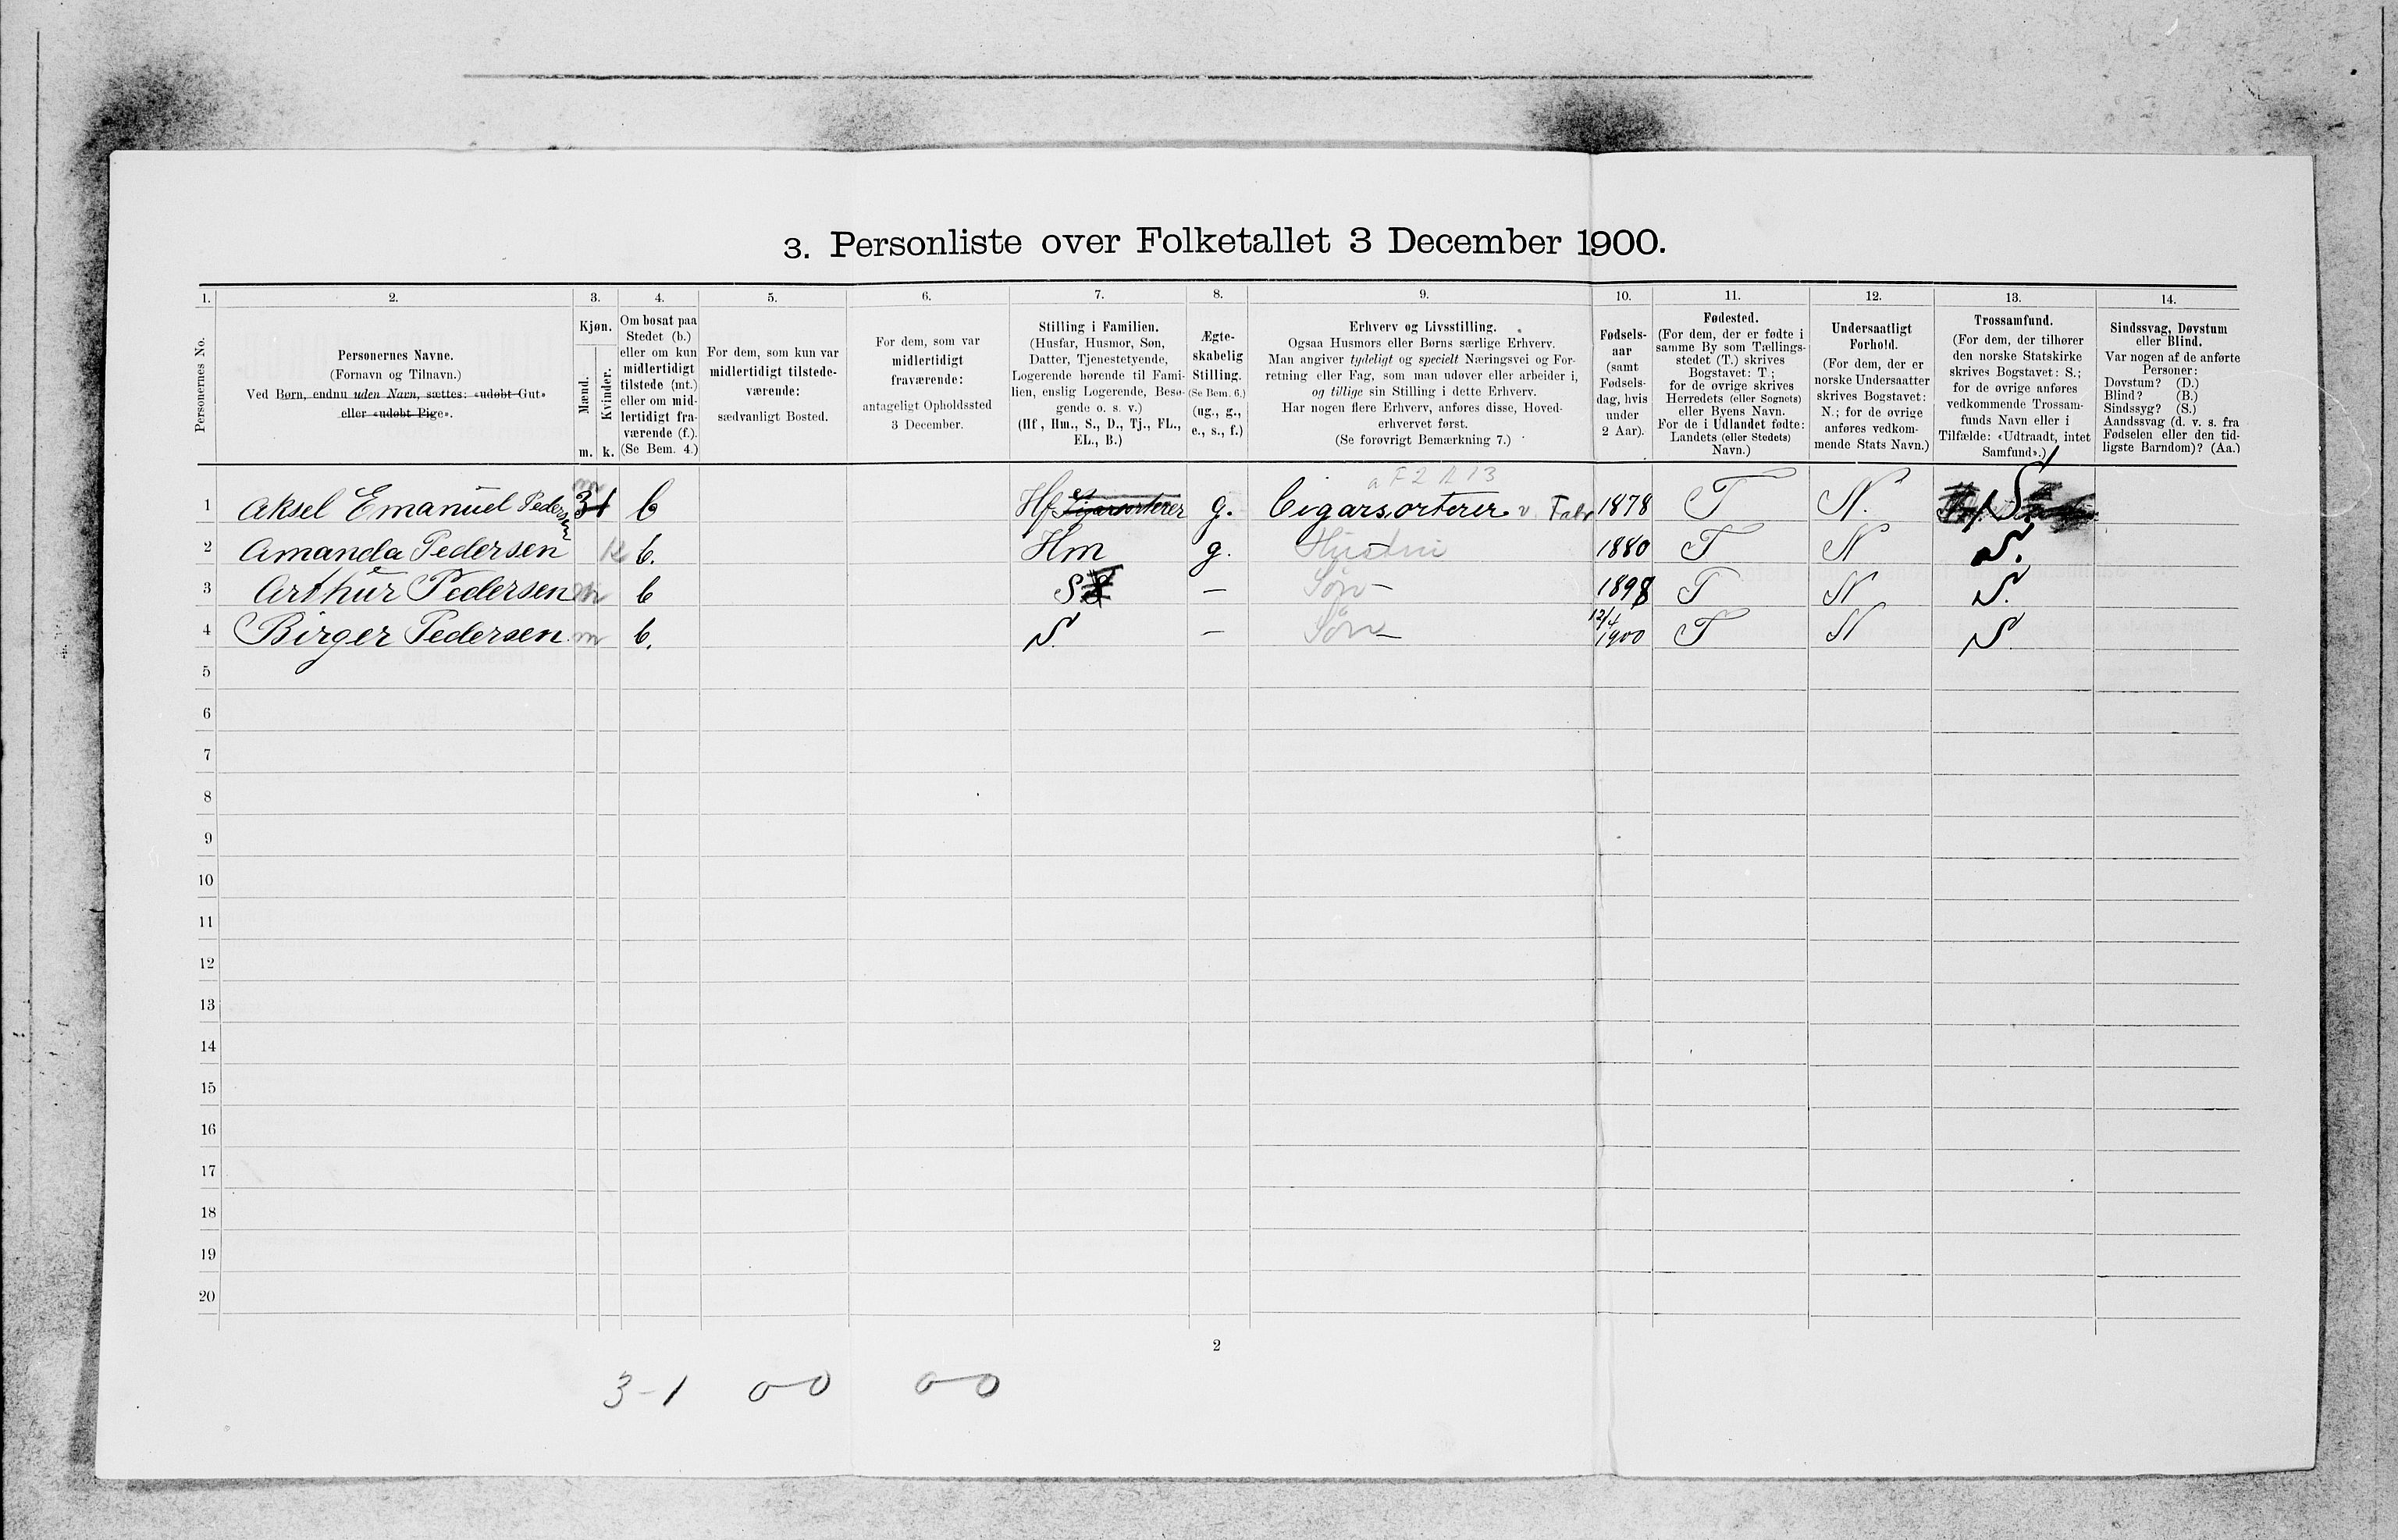 3. Personliste over Folketallet 3 December 1900.
1. 2. 3. 4. 5. 6. 7. 8. 9. 10. 11. 12. 13. 14.
Personernes No.
Personernes Navne.
(Fornavn og Tilnavn.)
Ved Børn, endnu uden Navn, sættes: «udøbt Gut»
eller «udøbt Pige».
Kjøn.
Mænd.
Kvinder.
m. k.
Om bosat paa
Stedet (b.)
eller om kun
midlertidigt
tilstede (mt.)
eller om mid-
lertidigt fra-
værende (f.).
(Se Bem. 4.)
For dem, som kun var
midlertidigt tilstede-
værende:
sædvanligt Bosted.
For dem, som var
midlertidigt
fraværende:
antageligt Opholdssted
3 December.
Stilling i Familien.
(Husfar, Husmor, Søn,
Datter, Tjenestetyende,
Logerende hørende til Fami-
lien, enslig Logerende, Besø-
gende o. s. v.)
(Hf., Hm., S., D., Tj., FL.,
EL., B.)
Ægte-
skabelig
Stilling.
(Se Bem. 6.)
(ug., g.,
e., s., f.)
Erhverv og Livsstilling.
Ogsaa Husmors eller Børns særlige Erhverv.
Man angiver tydeligt og specielt Næringsvei og For-
retning eller Fag, som man udøver eller arbeider i,
og tillige sin Stilling i dette Erhverv.
Har nogen flere Erhverv, anføres disse, Hoved-
erhvervet først.
(Se forøvrigt Bemærkning 7.)
Fødsels-
aar
(samt
Fødsels-
dag, hvis
under
2 Aar).
Fødested.
(For dem, der er fødte i
samme By som Tællings-
stedet (T.) skrives
Bogstavet: T.;
for de øvrige skrives
Herredets (eller Sognets)
eller Byens Navn.
For de i Udlandet fødte:
Landets (eller Stedets)
Navn.)
Undersaatligt
Forhold.
(For dem, der er
norske Undersaatter
skrives Bogstavet:
N.; for de øvrige
anføres vedkom-
mende Stats Navn.)
Trossamfund.
(For dem, der tilhører
den norske Statskirke
skrives Bogstavet: S.;
for de øvrige anføres
vedkommende Trossam-
funds Navn eller i
Tilfælde: «Udtraadt, intet
Samfund».)
Sindssvag, Døvstum
eller Blind.
Var nogen af de anførte
Personer:
Døvstum? (D.)
Blind? (B.)
Sindssyg? (S.)
Aandssvag (d. v. s. fra
Fødselen eller den tid-
ligste Barndom)? (Aa.)
a F 2 B 13
1 Aksel Emanuel Pedersen m 31 b Hf Sigarsorterer g. Cigarsorterer v Fabr 1878 T N. S.
2 Amanda Pedersen k b. Hm g. Hustru 1880 T N S.
3 Arthur Pedersen m b S – Søn – 1898 T N S.
4 Birger Pedersen. m b. S. – Søn – 12/4 1900 T N S
5
6
7
8
9
10
11
12
13
14
15
16
17
18
19
20
2
3-1 0-0 0-0